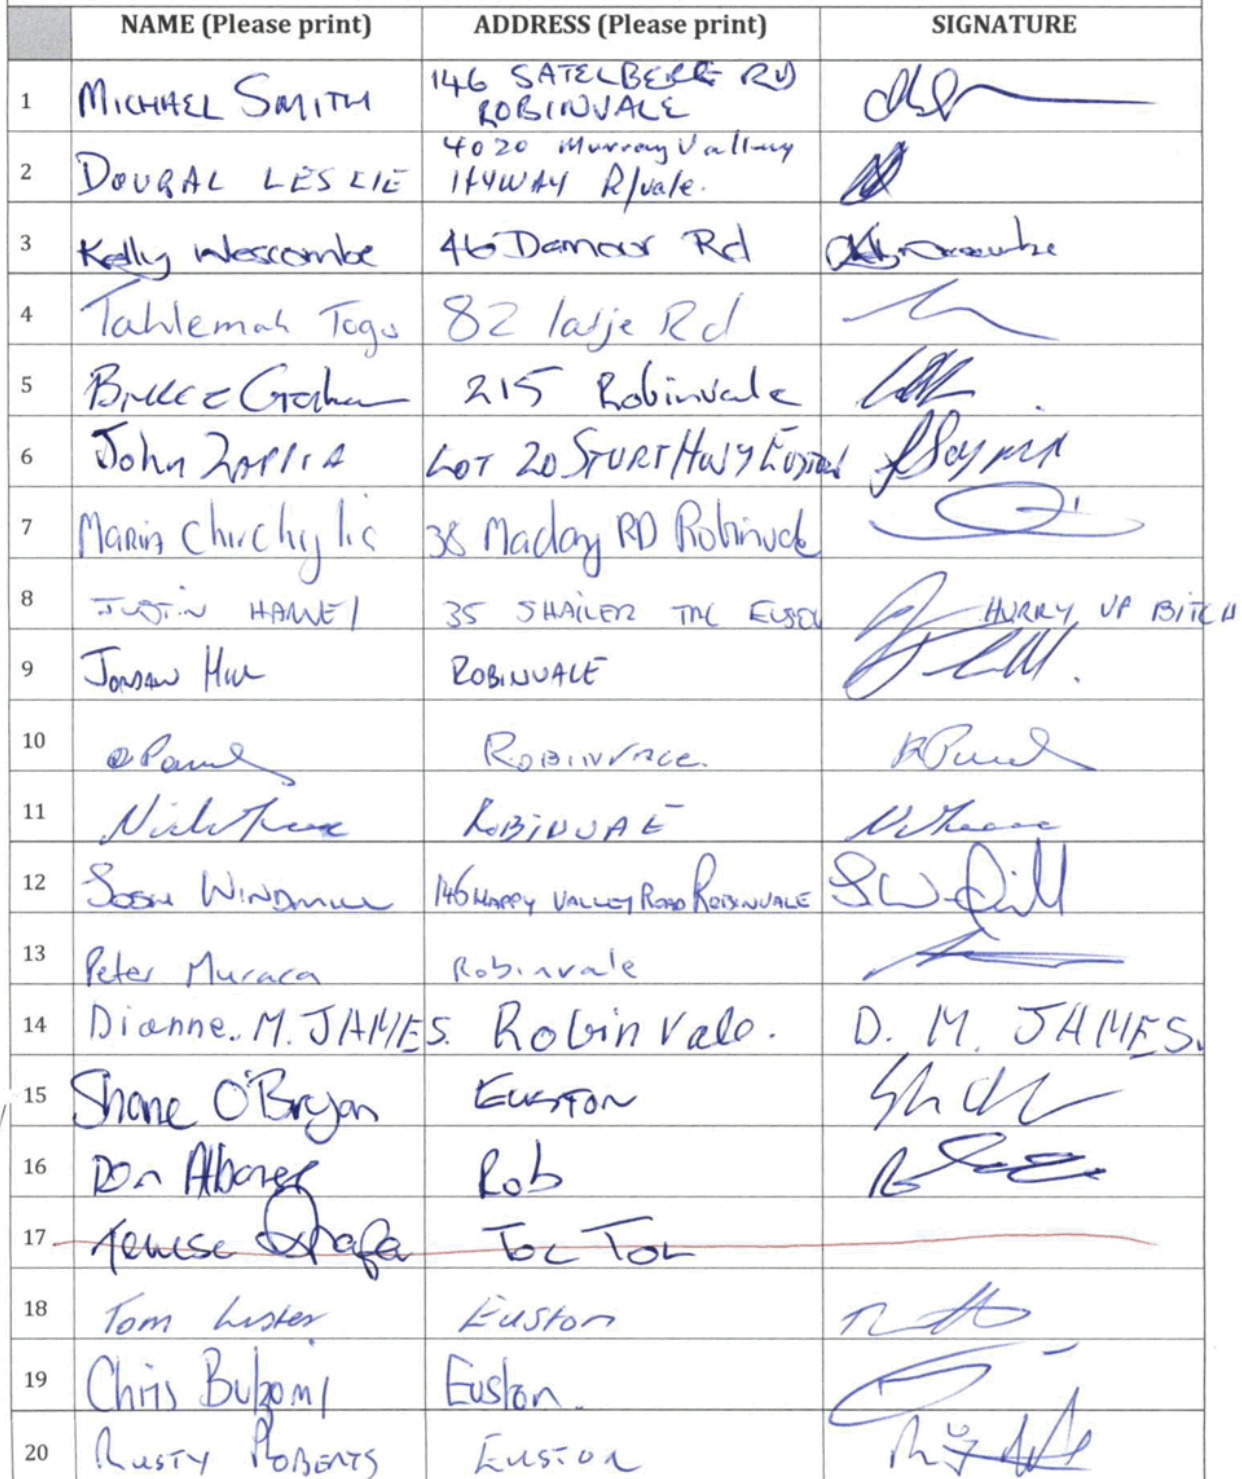 NAME (Please print) ADDRESS (Please print) SIGNATURE
1 MICHAEL SMITH 146 SATELBERG RD
ROBINVALE
2 DOUGAL LESLIE 4020 Murray Valley
HYWAY R/vale.
3 Kelly Wescombe 46 Damour Rd
4 Tahlemah Togo 82 latje Rd
5 BRUCE Graham 215 Robinvale
6 John ZAPPIA LOT 20 STURT HWY EUSTON
7 Maria 38 RD
8 JUSTIN 35 SHAILER HURRY UP BITCH
9 JORDAN Hill ROBINVALE
10 ROBINVALE
11 Nick ROBINVAE
12 JOSH WINDMILL 146 HAPPY VALLEY ROAD ROBINVALE
13 Peter Muraca Robinvale
14 Dianne. M. JAMES. Robinvale. D. M. JAMES.
15 Shane O'Bryan EUSTON
16 Rob
17 Tol Tol
18 Tom Lister Euston
19 Chris Euston.
20 RUSTY ROBERTS EUSTON